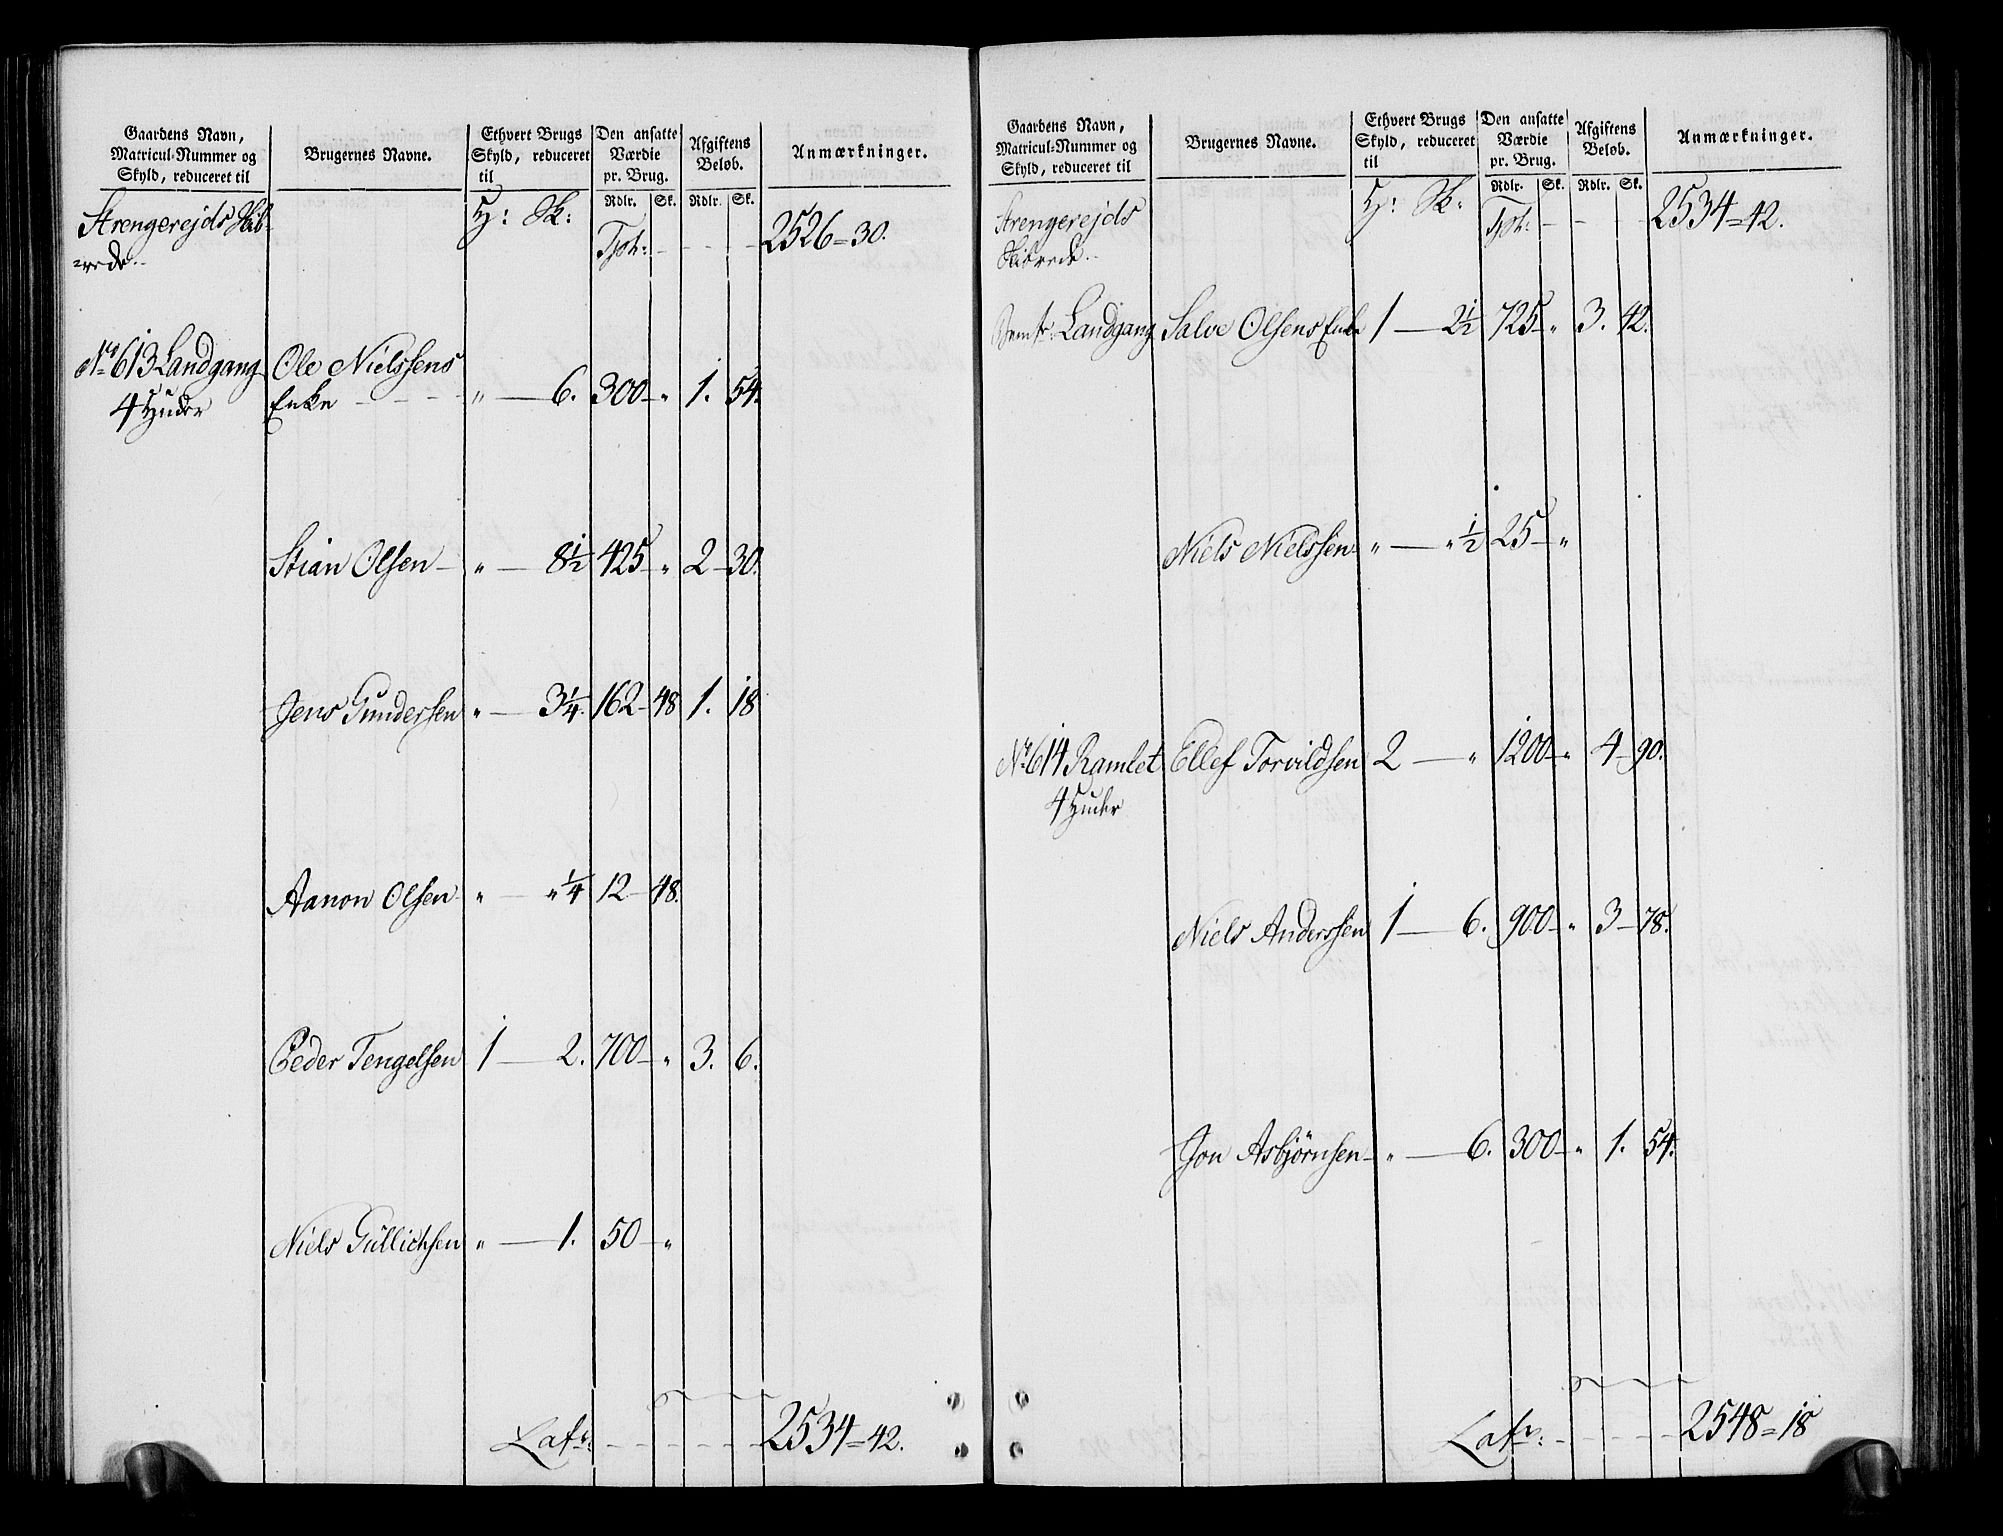 Gaardens Navn, Matricul-Nummer og Skyld, reduceret til
Brugernes Navne.
Ethvert Brugs Skyld, reduceret til
Den ansatte Værdie pr. Brug.
Afgiftens Beløb.
Anmærkninger.
Rdlr. Sk. Rdlr. Sk.
Strengerejds Skib- H: Sk: Tpt: - - - - 2526=30.
=rede..
No 613 Landgang Ole Nielssens
4 Huder Enke - - - - „ — 6. 300 — „ 1. 54.
Stian Olsen — „ — 8½ 425 — „ 2 — 30.
Jens Gundersen „ — 3¼. 162 — 48 1. 18
Aanon Olsen — „ — „ ¼ 12 — 48.
Peder Tengelsen 1 — 2. 700 — „ 3. 6.
Niels Gullichsen „ — 1. 50 — „
Latr: - - - - - - 2534=42.
Gaardens Navn, Matricul-Nummer og Skyld, reduceret til
Brugernes Navne.
Ethvert Brugs Skyld, reduceret til
Den ansatte Værdie pr. Brug.
Afgiftens Beløb.
Anmærkninger.
Rdlr. Sk. Rdlr. Sk.
Strengerejds H: Sk: Tpt: - - - 2534=42.
Skibrede..
Landgang Salve Olsens Enke 1 — 2½ 725 — „ 3. 42.
Niels Nielssen — „ — „ ½ 25 — „
No 614 Ramlet Ellef Torvildsen 2 — „ 1200 — „ 4 — 90.
4 Huder
Niels Anderssen 1 — 6. 900 — „ 3 — 78.
Jon Asbjørnsen — „ — 6. 300 — „ 1. 54.
Latr: - - - - - 2548=18